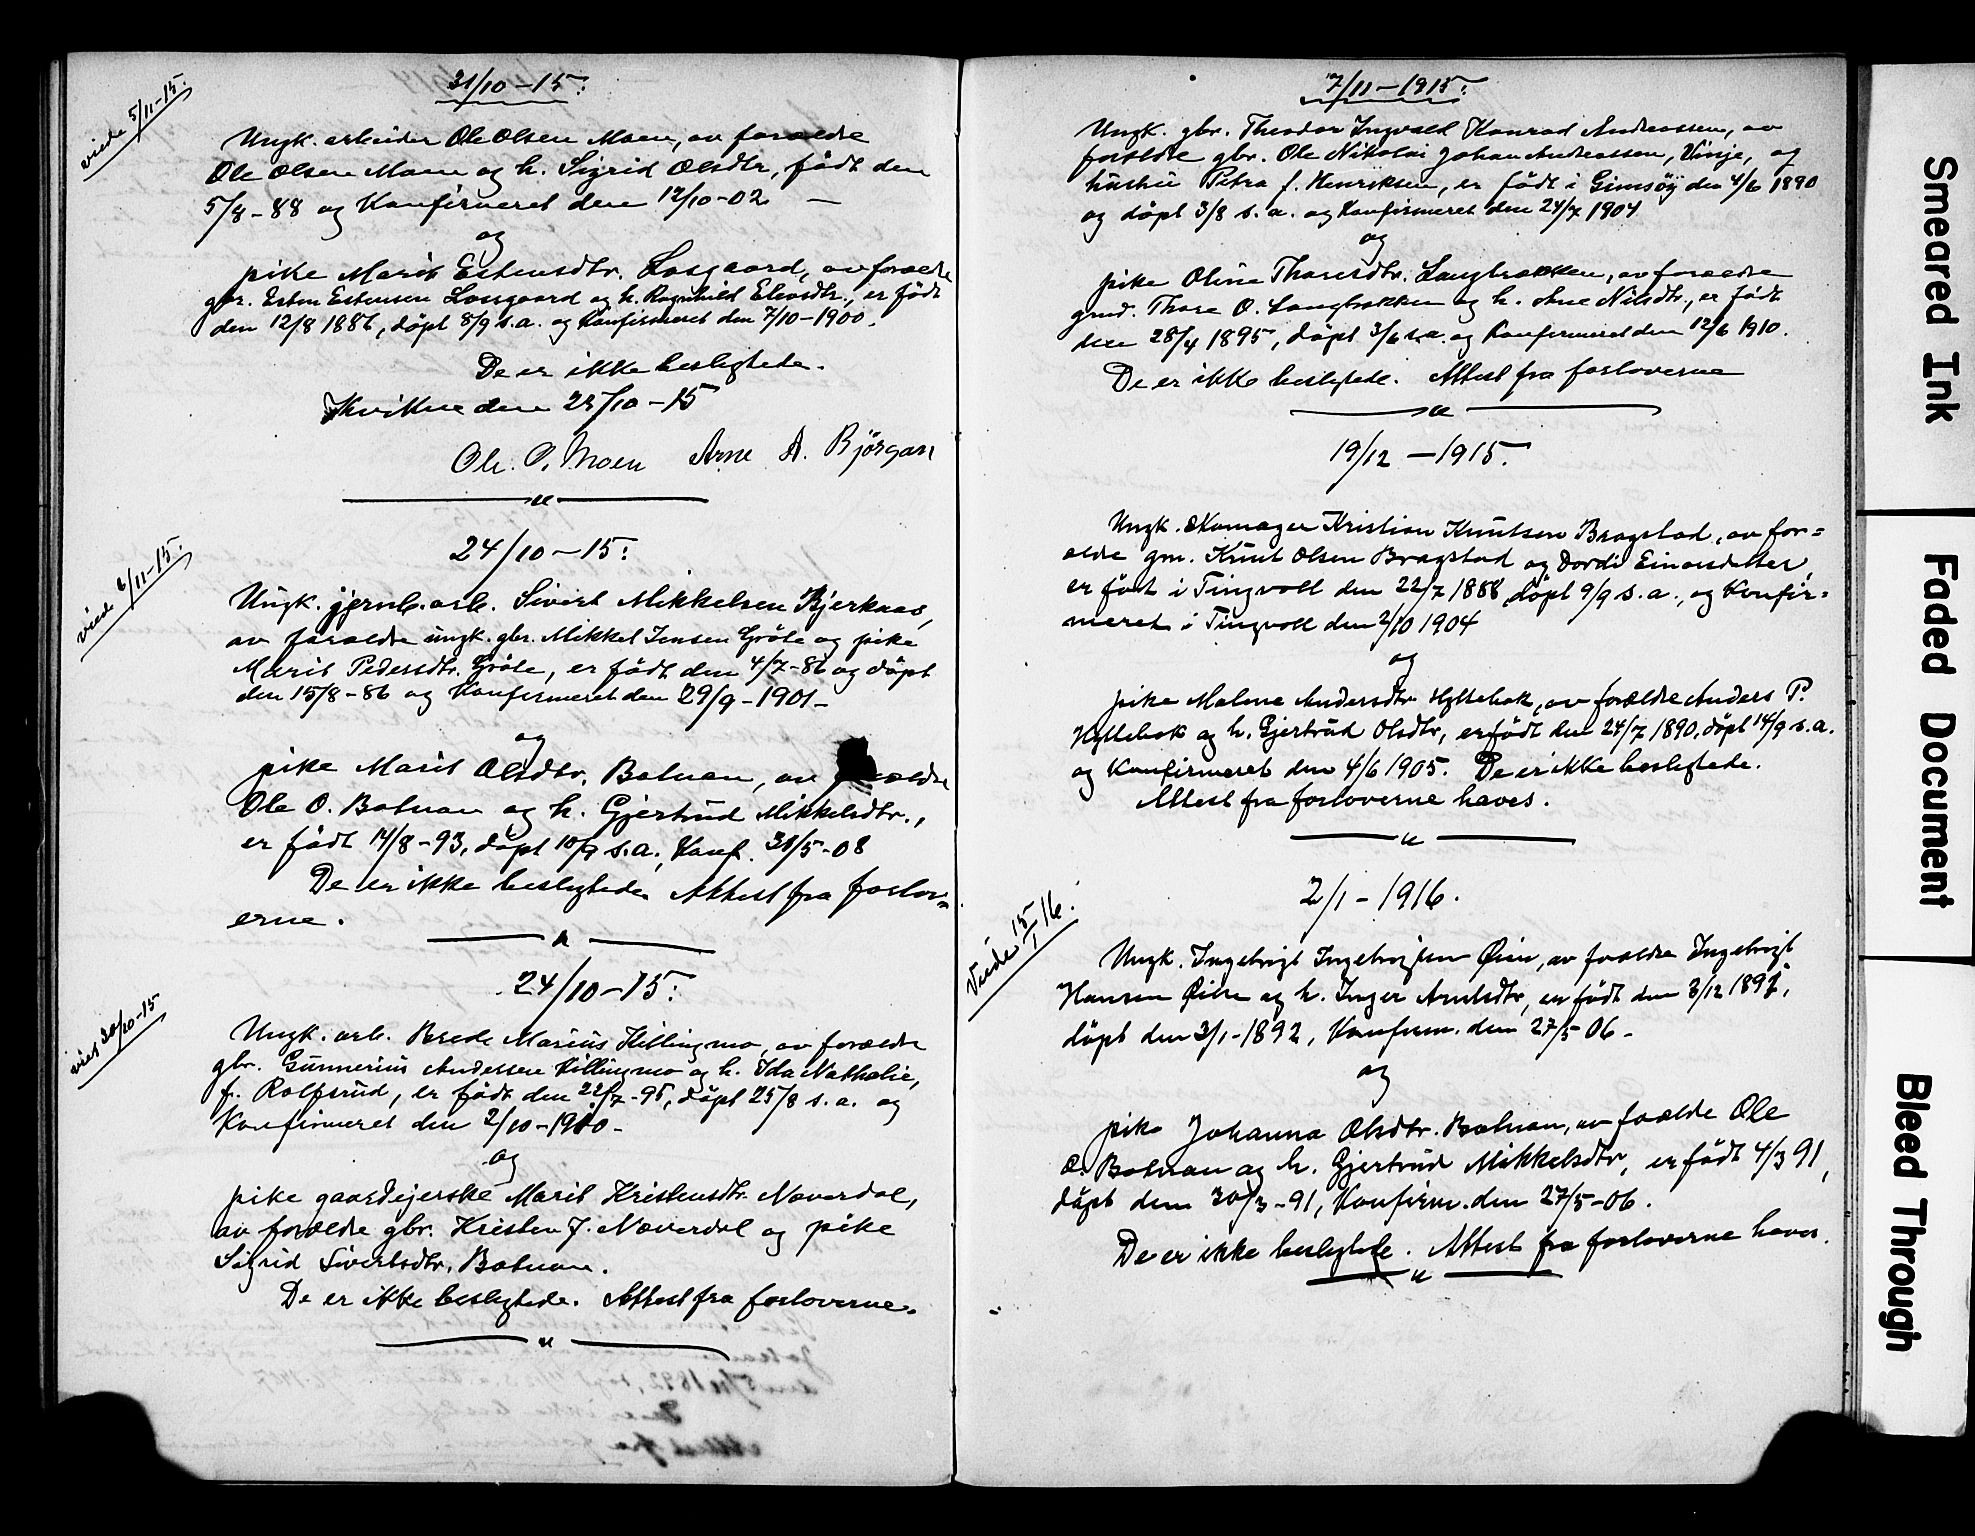 31/10 – 15:
viede 5/11-15:
Ungk. arbeider Ole Olsen Moen, av forældre
Ole Olsen Moen og h. Sigrid Olsdtr, født den
5/8 – 88 og Konfirmeret den 12/10-02 —
og
pike Marit Estensdtr. Losgaard, av forældre
gbr. Esten Estensen Losgaard og h. Ragnhild Eleosdtr., er født
den 12/8 1886, döpt 8/9 s.a. og Konfirmeret den 7/10-1900.
De er ikke beslegtede.
Kvikne den 28/10 – 15
Ole. O. Moen Arne A. Björgan
24/10 – 15:
viede 6/11-15:
Ungk. jernb. arb. Sivert Mikkelsen Bjerkaas,
av forældre ungk. gbr. Mikkel Jensen Gröte og pike
Marit Pedersdtr. Gröte, er født den 4/7-86 og döpt
den 15/8-86 og Konfirmeret den 29/9-1901-
og
pike Marit Olsdtr. Botnan, av forældre
Ole O. Botnan og h. Gjertrud Mikkelsdtr.,
er født 14/8-93, döpt 10/9 s.a., Konf. 31/5-08
De er ikke beslegtede. Attest fra forlov=
erne.
24/10 – 15:
viet 30/10-15
Ungk. arb. Brede Marius Killingmo, av forældre
gbr. Gunnerius Andersen Killingmo og h. Ida Nathalie,
f. Rolfsrud, er født den 22/7-95, döpt 25/8 s.a. og
Konfirmeret den 2/10-1910-
og
pike gaardejerske Marit Kristensdtr. Næverdal,
av forældre gbr. Kristen J. Næverdal og pike
Sigrid Sivertsdtr. Botnan.
De er ikke beslegtede. Attest fra forloverne.
7/11 – 1915:
Ungk. gbr. Theodor Ingvald Konrad Andreassen, av
forældre gbr. Ole Nikolai Johan Andreassen, Vinje, og
hustru Petra f. Henriksen, er født i Gimsöy den 4/6 1890
og döpt 3/8 s.a. og Konfirmeret den 24/7 1904
og
pike Oline Thoresdtr. Langbrækken, av forældre
gmd. Thore O. Langbrækken og h. Ane Nilsdtr., er født
den 28/4 1895, döpt 3/6 s.a. og Konfirmeret den 12/6 1910.
De er ikke beslegtede. Attest fra forloverne
19/12 – 1915.
Ungk. skomager Kristian Knutsen Bragstad, av for=
ældre gm. Knut Olsen Bragstad og Dordi Einarsdatter,
er født i Tingvoll den 22/7 1888, döpt 9/9 s.a., og Konfir=
meret i Tingvoll den 2/10 1904
og
pike Malene Andersdtr Hyttebak, av forældre Anders P.
Hyttebak og h. Gjertrud Olsdtr, er født den 24/7 1890, döpt 14/9 s.a.
og Konfirmeret den 4/6 1905. De er ikke beslegtede.
Attest fra forloverne haves.
2/1 – 1916.
Viede 15/1 16.
Ungk. Ingebrigt Ingebrigtsen Øien, av forældre Ingebrigt
Hansen Øien og h. Inger Arntsdtr, er født den 3/12 1891,
döpt den 3/1-1892, Konfirm. den 27/5 06-
og
pike Johanna Olsdtr. Botnan, av forældre Ole
O. Botnan og h. Gjertrud Mikkelsdtr, er født 4/3 91,
döpt den 30/3-91, Konfirm. den 27/5-06.
De er ikke beslegtede. Attest fra forloverne haves.
Smeared Ink
Faded Document
Bleed Through